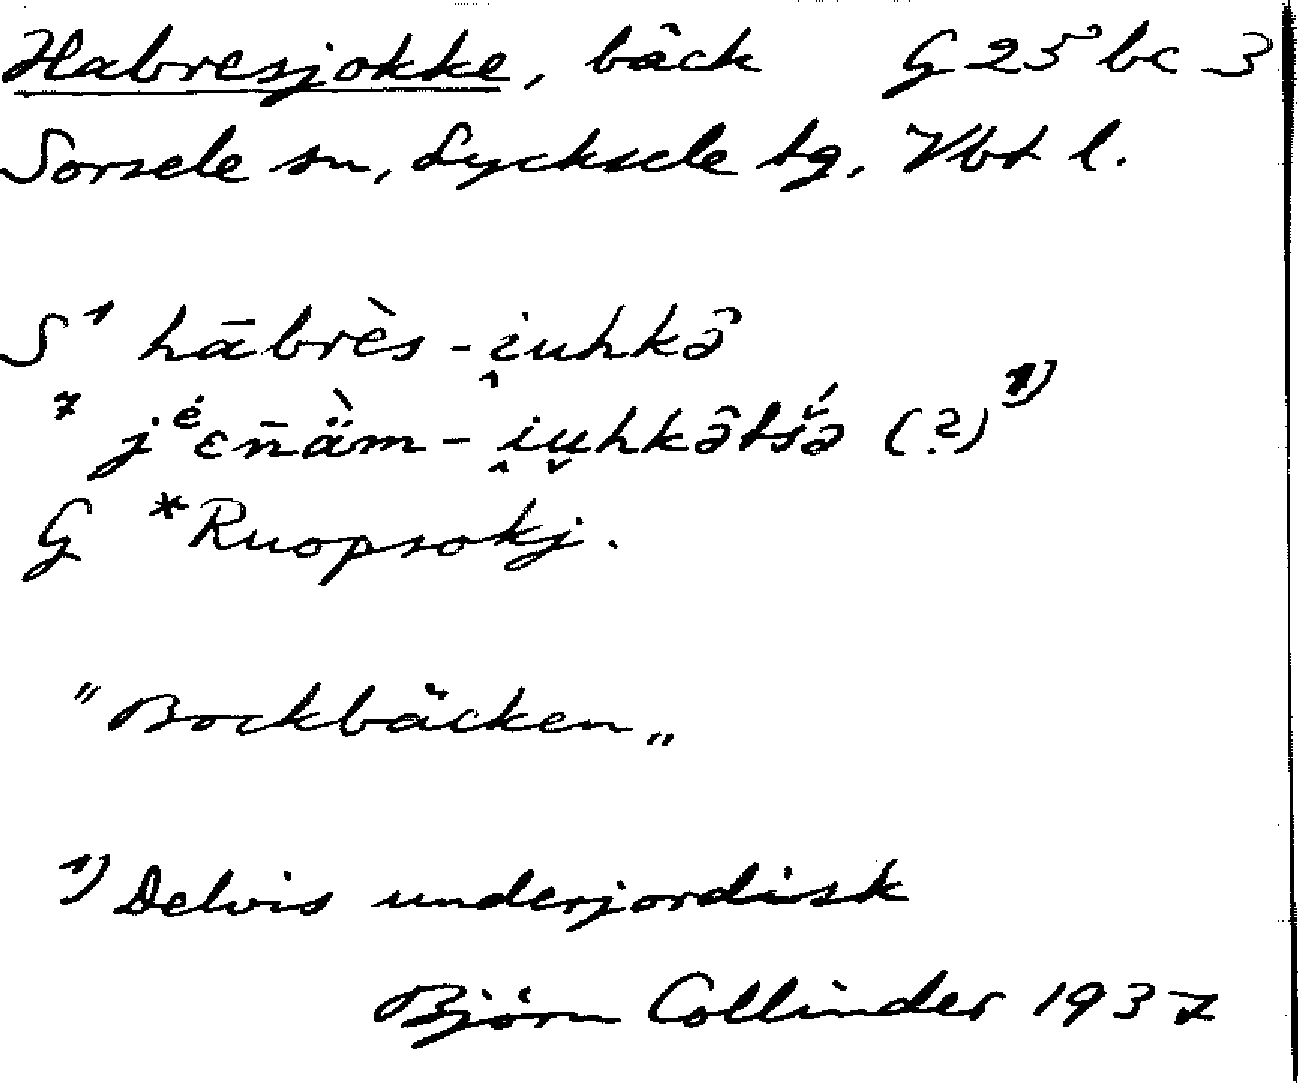 Habresjokke, bäck G 25 bc 3
Sorsele sn, Lycksele tg, Vbt l.
S¹ hābrès-i̭uhkə̂
⁷ jᵉ́ɛn̄ä̀m-i̭u̬hkə̂tš́ə (?)¹⁾
G *Ruopsokj.
"Bockbäcken„
¹⁾ Delvis underjordisk
Björn Collinder 1937